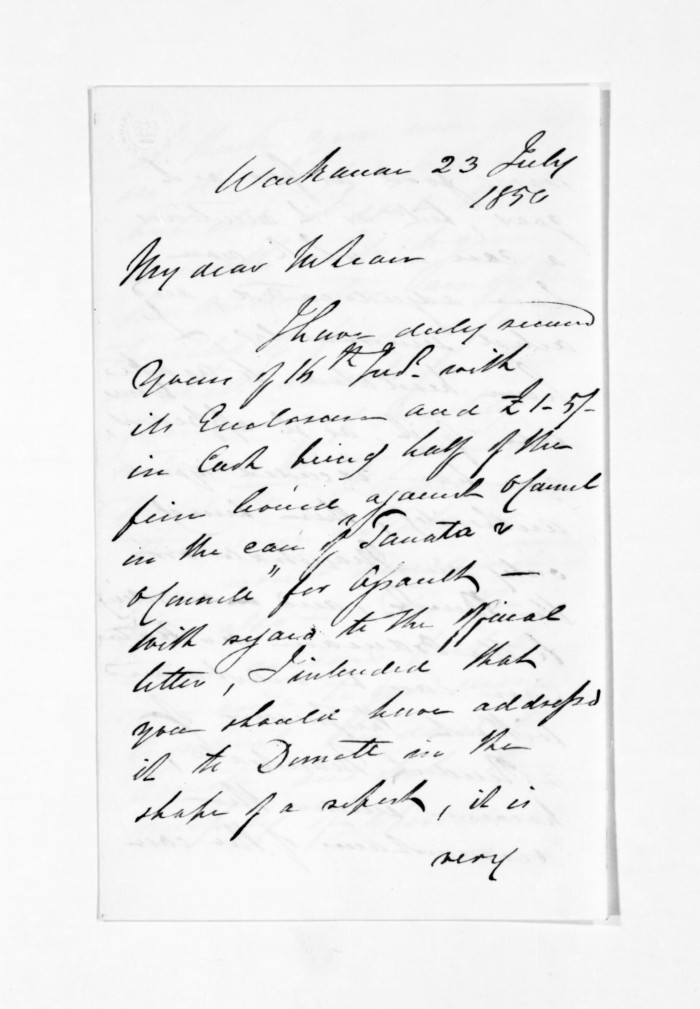 Waikanae 23 July
1850
My dear McLean
I have duly received
yours of 16th Inst. with
its Enclosure and £1-5/-
in Cash being half of the
fine levied against O'Connell
in the case of "Tanata v
O'Connell" for Assault —
With regard to the Official
letter, I intended that
you should have addressed
it to Domett in the
shape of a report, it is
very